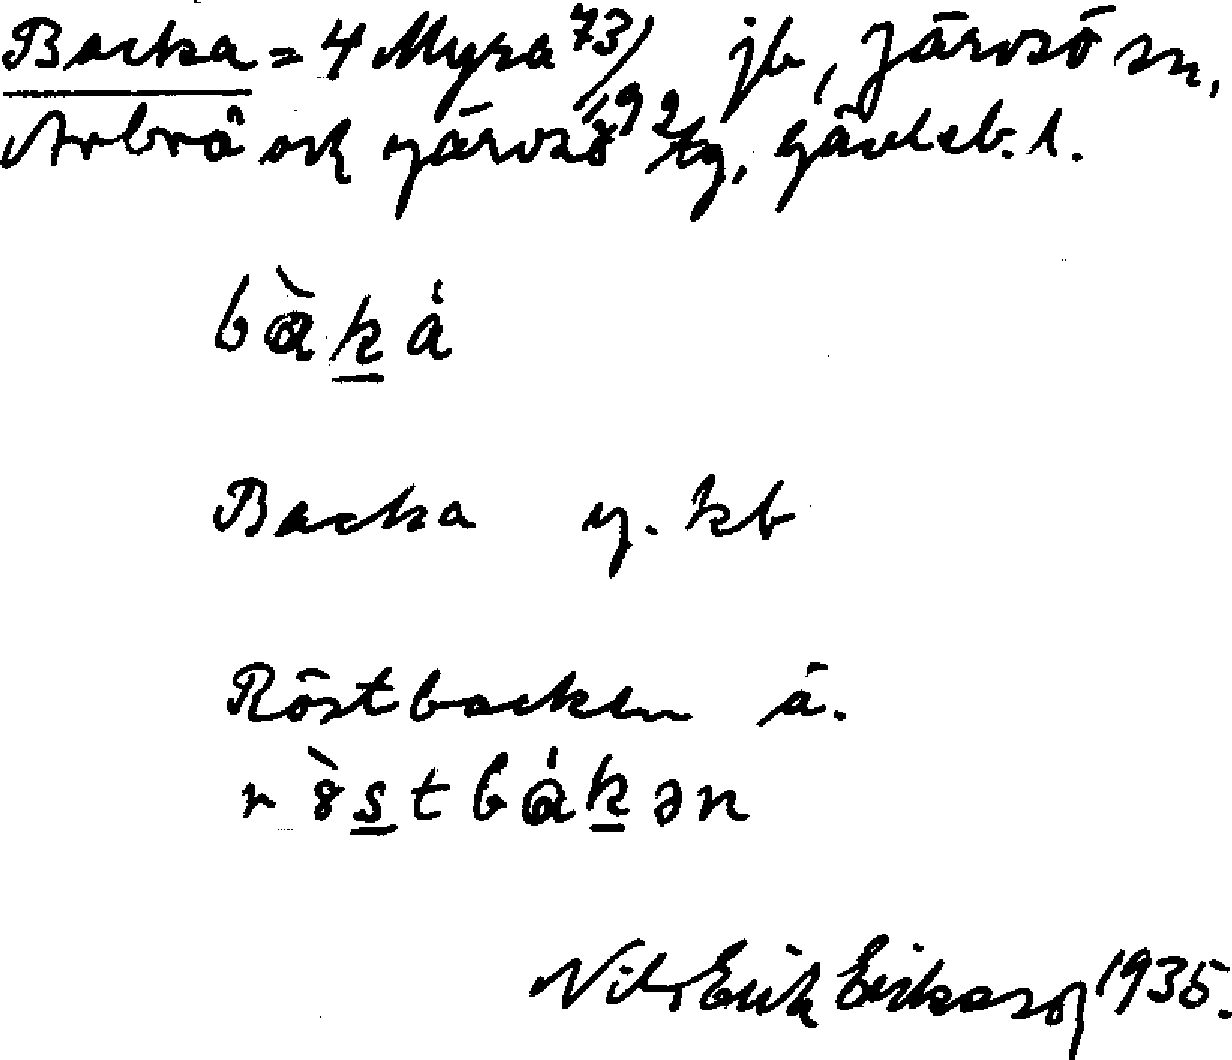 Backa = 4 Myra 73/192 jb, Järvsö sn,
Arbrå och Järvsö tg, Gävleb. l.
bàkå
Backa g. kb
Röstbacken ä.
r s t b k ə n
Nils Erik Eriksson 1935.